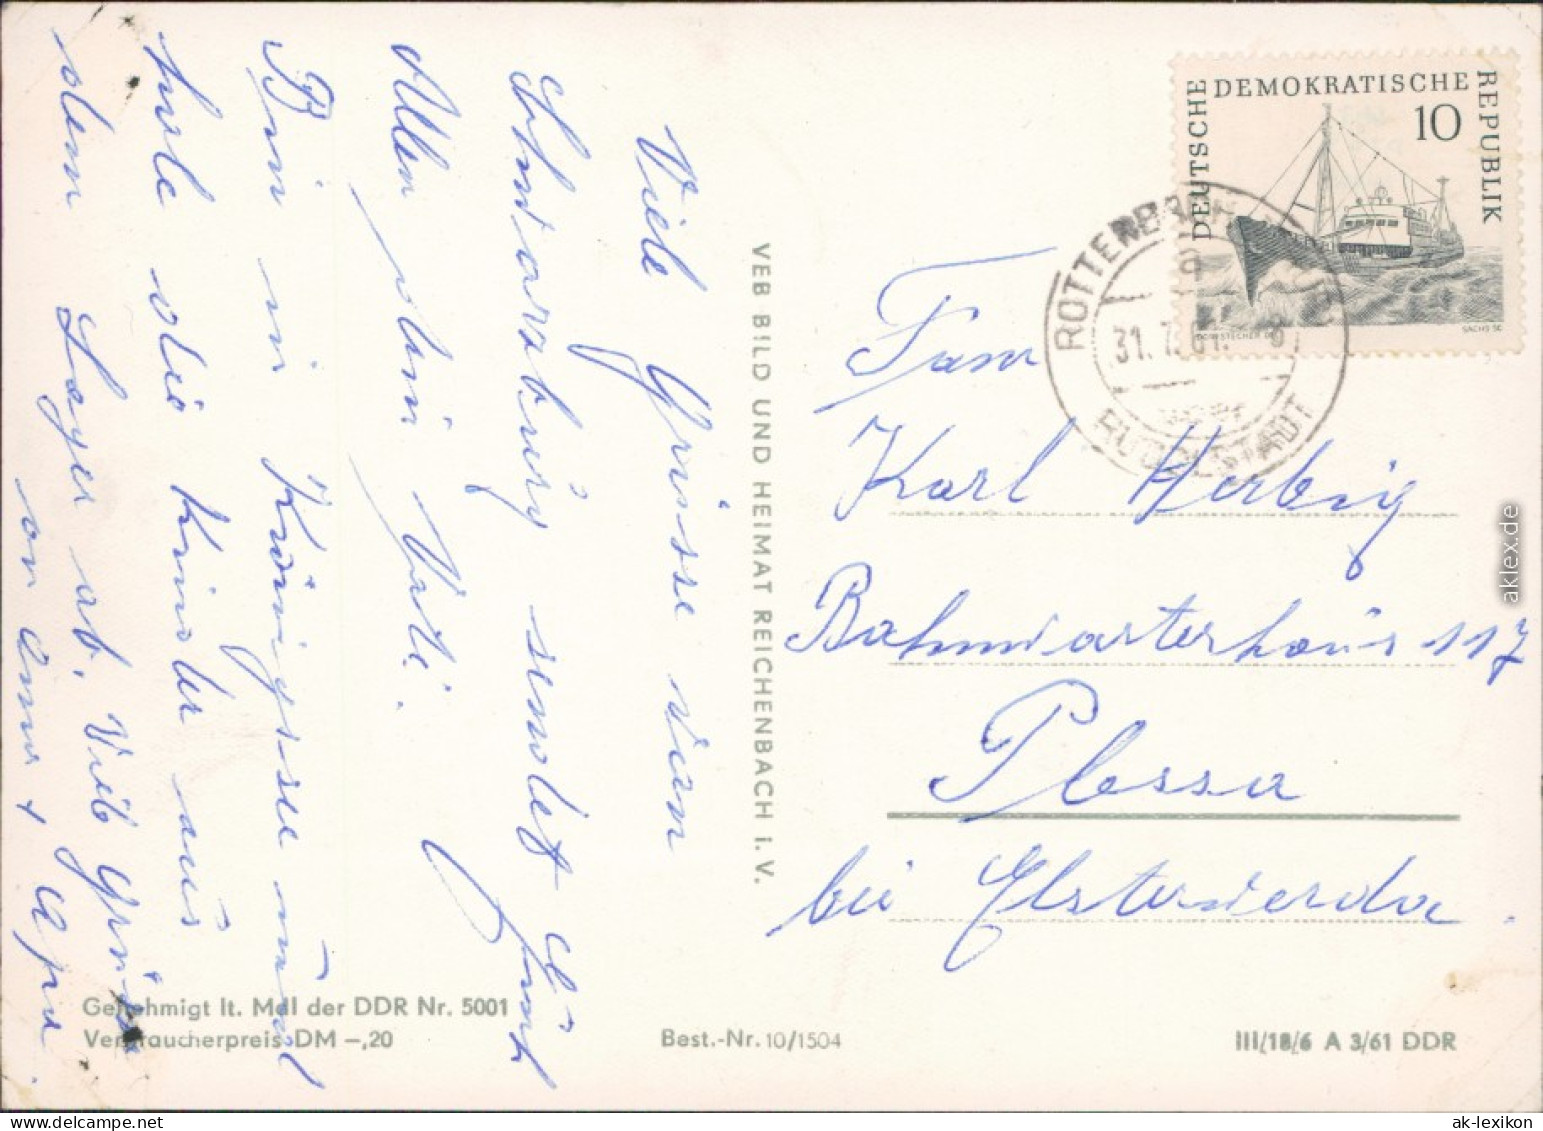 Viele Grüsse von
Schwarzburg sendet Euch
Allen
Bin in Königssee und
hole die Kinder aus
dem Lager ab. Viele Grüsse
von Oma + Opa.
VEB BILD UND HEIMAT REICHENBACH i. V.
DEUTSCHE DEMOKRATISCHE REPUBLIK
10
SACHS SC
ROTTENBACH
31.
RUDOLSTADT
Fam
Karl Herbig
Bahnwärterhaus 117
Plessa
bei Elsterwerda.
Genehmigt lt. MdI der DDR Nr. 5001
Verbraucherpreis DM –,20
Best.-Nr. 10/1504
III/18/6 A 3/61 DDR
aklex.de
ak-lexikon